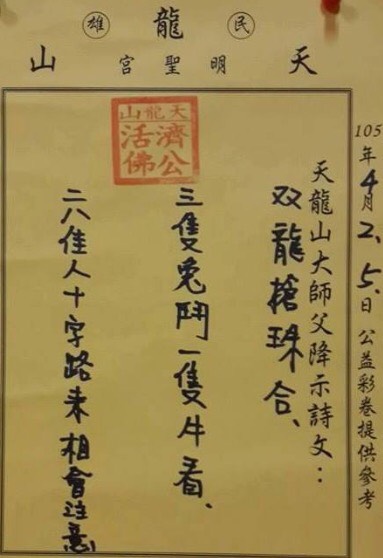 民龍雄
天明聖宮山
105年4月2、5、日公益彩卷提供參考
天龍山大師父降示詩文：
双龍搶珠合、
天龍山
濟公
活佛
三隻兔鬥一隻牛看、
二八佳人十字路来相會注意